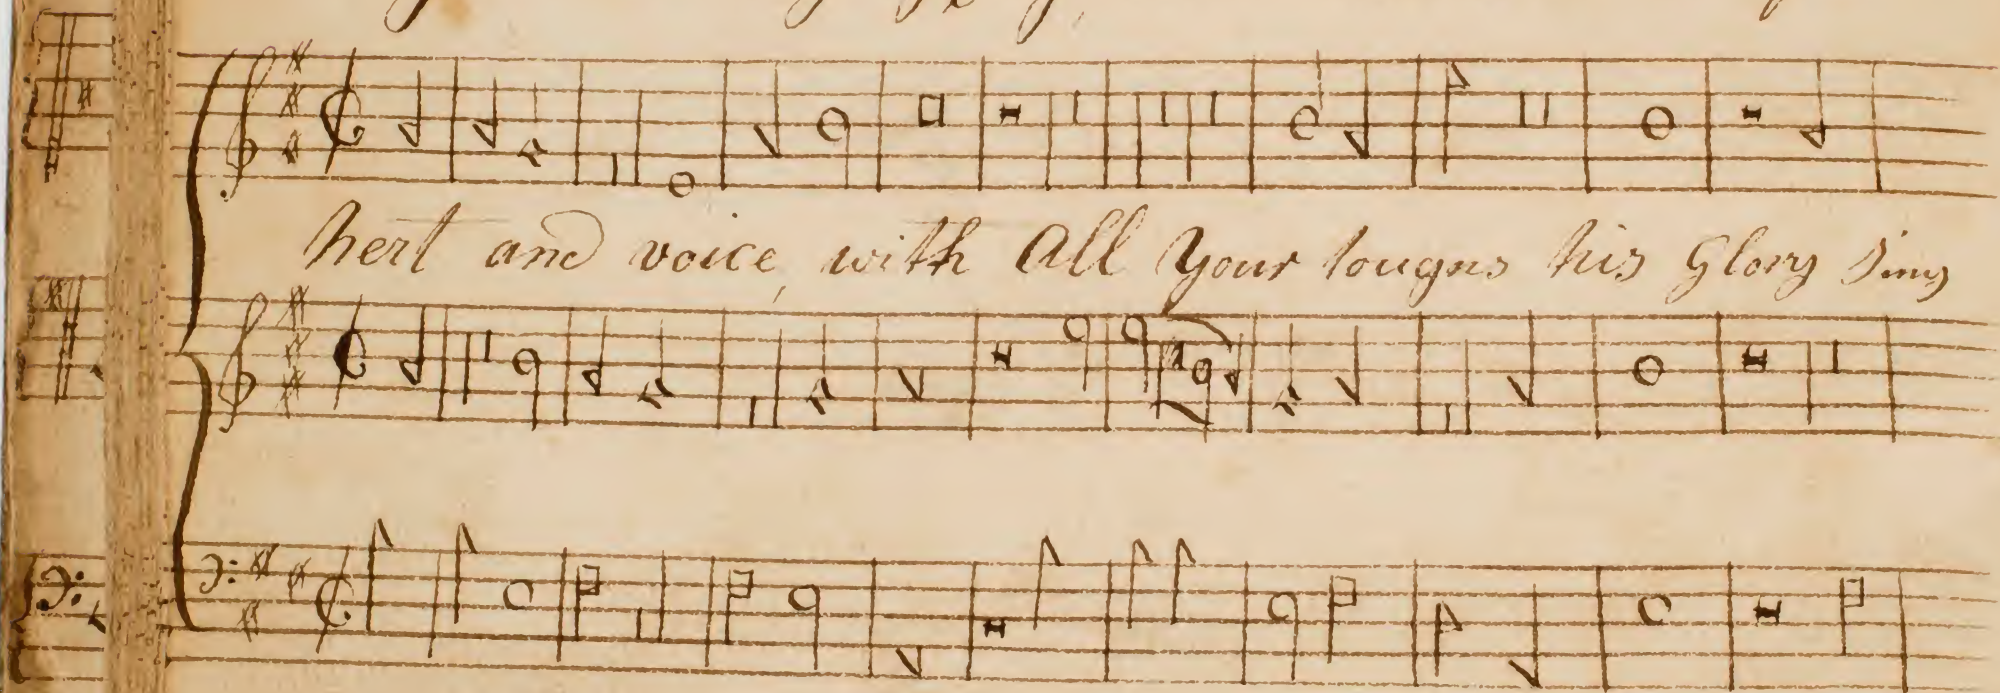 hert and voice, with All Your tougns his Glory Sing